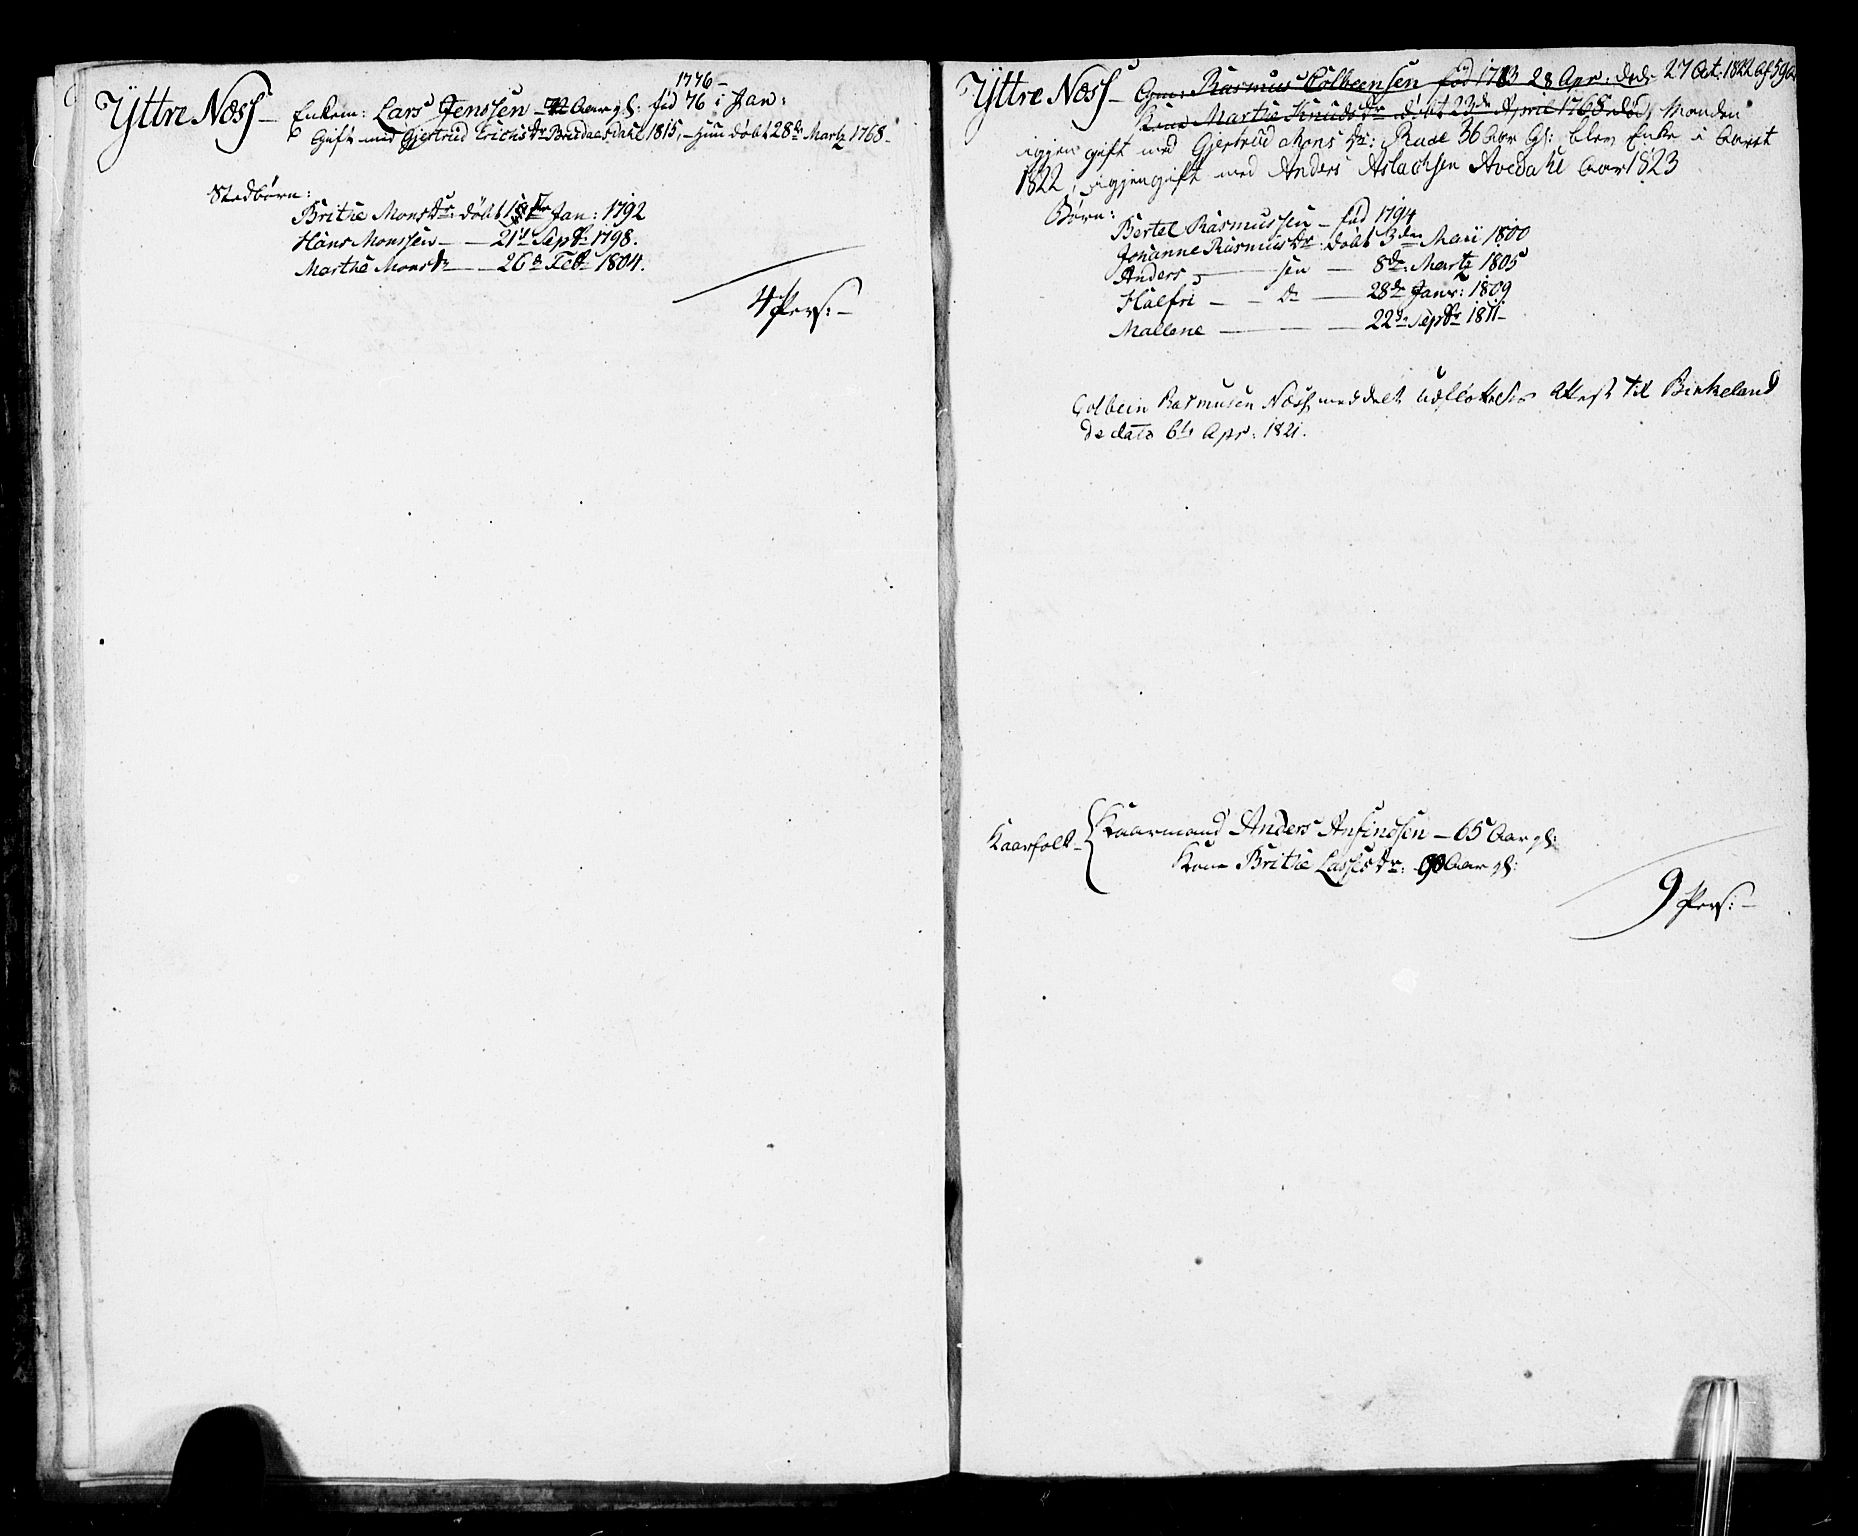 1776 -
Yttre Næss - Enkem: Lars Jenssen - Aar gl: fød 76 i Jan:
Gift med Gjertrud Erichs dr Bredaasdahl 1815, - Hun døbt 28de Martz 1768 -
Stedbørn:
Brithe Mons dr: døbt Jan: 1792
Hans Monssen - - 21de Septbr 1798.
Marthe Mons dr - - 26de Feb 1804.
4 Pers: -
Yttre Næss - Gm: Rasmus Colbeensen fød 1763 28 Apr: døde 27 Oct. 1822 af 59 Aar
Kone Marthe Knuds dr døbt 23de April 1768 død, Manden
igjen gift med Gjertrud Mons dr: 36 Aar Gl: blev Enke i Aaret
1822, igjengift med Anders Aslachsen Avedahl Aar 1823
Børn:
Bertel Rasmussen - fød 1794
Johanne Rasmus dr: døbt 3den Maii 1800
Anders - sen - 8de: Martz 1805
Halfri - - dr - 28de Janr: 1809
Mallene - 22de Septbr 1811 -
Golbein Rasmusen Næss meddelt udflottelses Attest til Birkeland
de dato 6te Apr: 1821.
Kaarfolk - Kaarmand Anders Anfindsen - 65 Aar gl:
Kone Brithe Lasses dr: Aar gl:
9 Pers: -